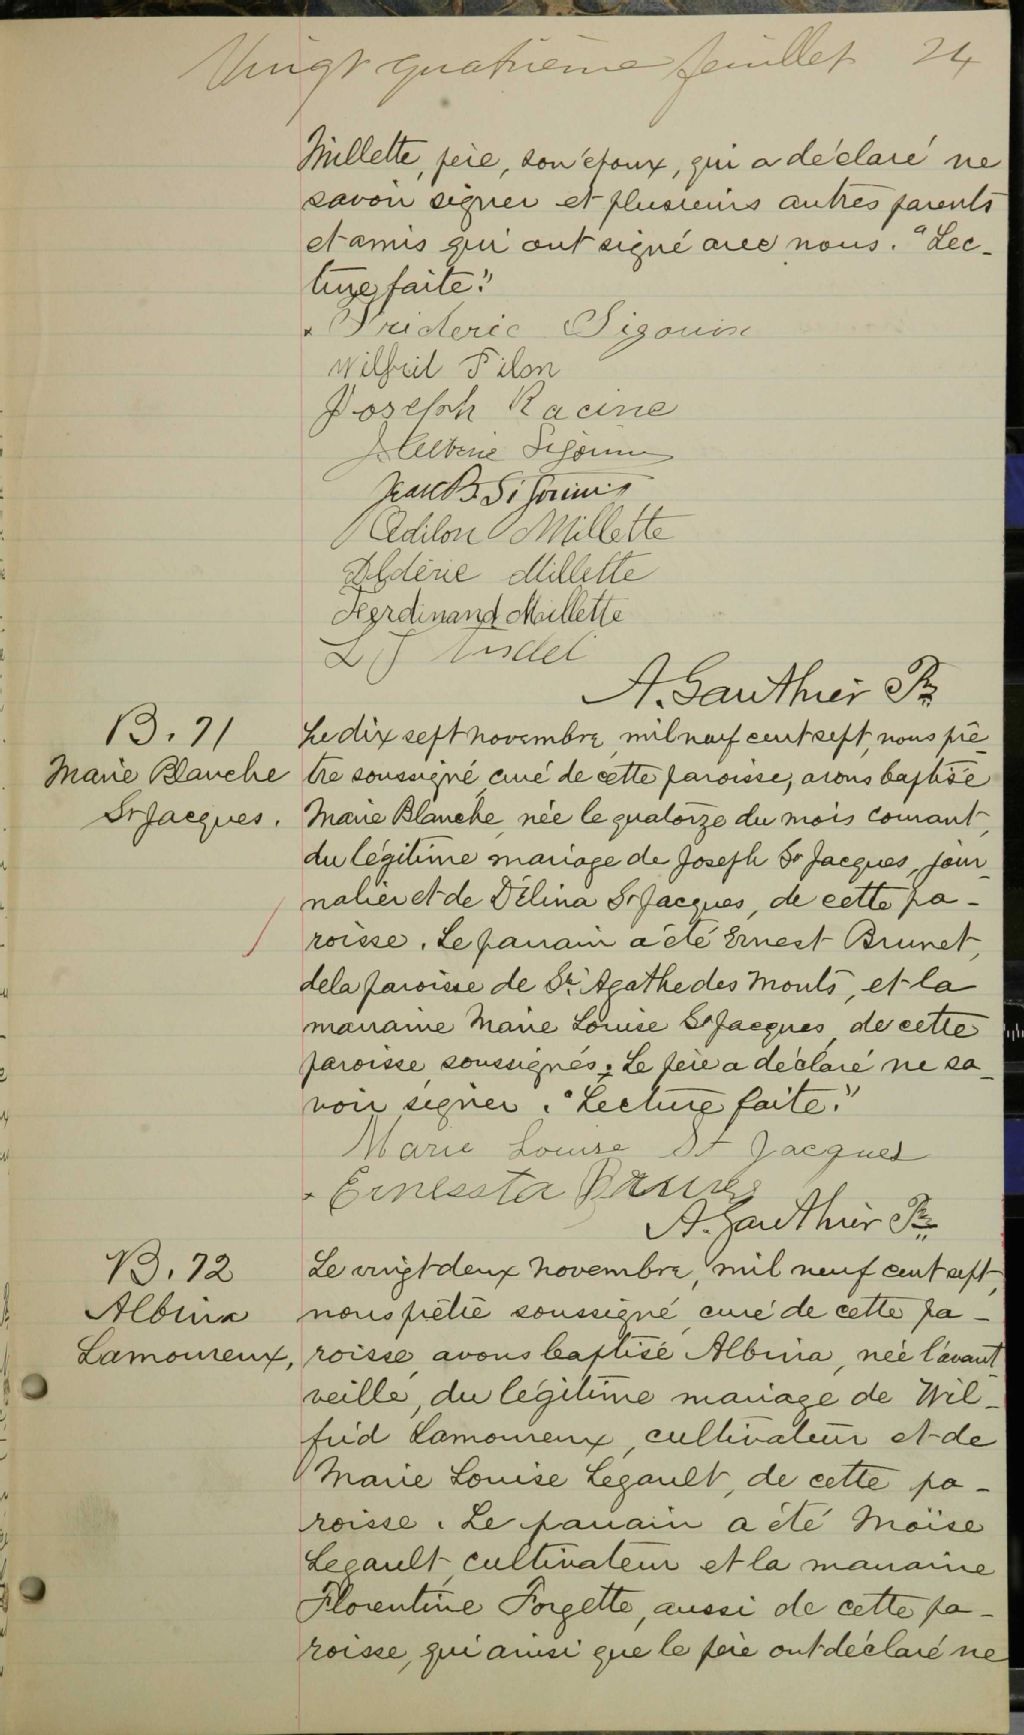 Vingt quatrième feuillet 24
Millette, père, son époux, qui a déclaré ne
savoir signer et plusieurs autres parents
et amis qui ont signé avec nous. "Lec-
ture faite."
Frideric Sigouin
Wilfrid Filon
Joseph Racine
Sigouin
Jean B. Sigouin
Odilon Millette
Aldéric Millette
Ferdinand Millette
A. Gauthier Ptre
B. 71
Marie Blanche
St Jacques.
Le dix sept novembre, mil neuf cent sept, nous prê-
tre soussigné, curé de cette paroisse, avons baptisé
Marie Blanche, née le quatorze du mois courant,
du légitime mariage de Joseph St Jacques, jour-
nalier et de Délina St Jacques, de cette pa-
roisse. Le parrain a été Ernest Brunet,
de la paroisse de Ste Agathe des Monts, et la
marraine Marie Louise St Jacques, de cette
paroisse, soussignés. Le père a déclaré ne sa-
voir signer. "Lecture faite."
Marie Louise St Jacques
A. Gauthier Ptre
B. 72
Albina
Lamoureux,
Le vingt-deux novembre, mil neuf cent sept,
nous prêtre soussigné, curé de cette pa-
roisse, avons baptisé Albina, née l'avant
veille, du légitime mariage de Wil-
frid Lamoureux, cultivateur et de
Marie Louise Legault, de cette pa-
roisse. Le parrain a été Moïse
Legault, cultivateur et la marraine
Florentine Forgette, aussi de cette pa-
roisse, qui ainsi que le père ont déclaré ne